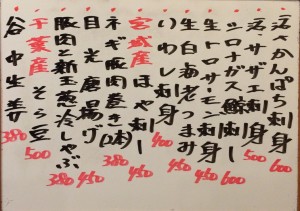 活さかんぱち刺身 600
活サザエ刺身 500
シロナガス鯨刺し 600
生トロサーモン刺身 450
生白海老つまみ 450
いわし刺身 400
宮城産 ほや刺し
ネギ豚肉巻き(2本) 380
目光唐揚げ 450
豚肉と新玉葱冷しゃぶ 380
千葉産 そら豆 500
谷中生姜 380